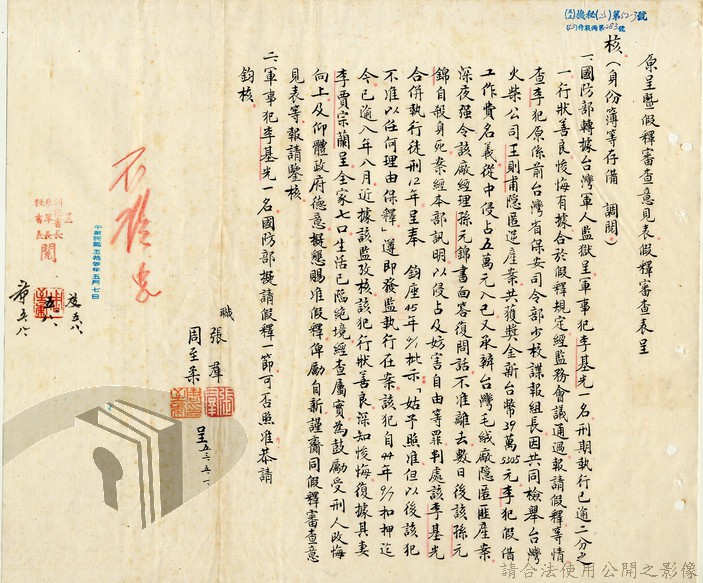 原呈暨假釋審查意見表假釋審查表呈
核(身份簿等存備 調閱)
一、國防部轉據台灣軍人監獄呈軍事犯李基光一名刑期執行已逾二分之
一行狀善良悛悔有據合於假釋規定經監務會議通過報請假釋等情
查李犯原係前台灣省保安司令部少校諜報組長因共同檢舉台灣
火柴公司王則甫隱匿逆產案共獲獎金新台幣39萬5305元李犯假借
工作費名義從中侵占五萬元入己又承辦台灣毛絨廠隱匿匪產案
深夜強令該廠經理孫元錦書面答復問話不准離去數日後該孫元
錦自殺身死案經本部訊明以侵占及妨害自由等罪判處該李基光
合併執行徒刑12年呈奉 鈞座45年9/1批示「姑予照准但以後該犯
不准以任何理由保釋」遵即發監執行在案該犯自44年9/1扣押迄
今已逾八年八月近據該監攷核該犯行狀善良深知悛悔復據其妻
李賈宗蘭呈全家七口生活已臨絕境經查屬實為鼓勵受刑人改悔
向上及仰體政府德意擬懇賜准假釋俾勵自新謹齎同假釋審查意
見表等報請鑒核
二、軍事犯李基光一名國防部擬請假釋一節可否照准恭請
鈞核
職 張 羣
周至柔
呈
不准
閱
請合法使用公開之影像